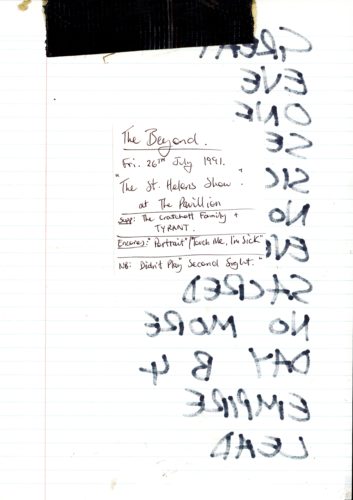 The Beyond.
Fri. 26TH July 1991.
"The St. Helens Show".
at The Pavillion
Supp: The Cratchett Family +
TYRANT.
Encores: "Portrait"/"Touch Me, I'm Sick"
NB: Didn't Play "Second Sight."
GREAT
EVE
ONE
SE
SIC
NO
EVE
SACRED
NO MORE
DAY B 4
EMPIRE
LEAD